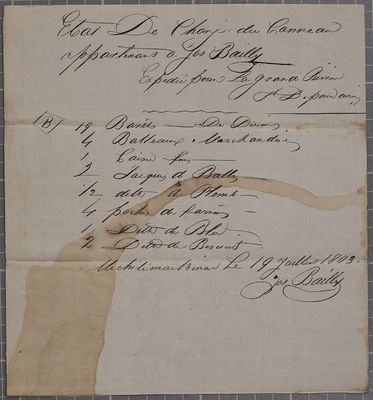 Etat De Charge du Canneau
appartenans a Jos Bailly
Expedié pour La grand Riviere
(B) 19 Barils De
4 Balleaux Marchandise
1 Caisse fer
2 Sacques de Balles
1/2 ditto de Plomb
4 poches de farine
1 Ditto de Bled
2 Ditto de Biscuit
Michilimackinac Le 19 Juillet 1803
Jos Bailly